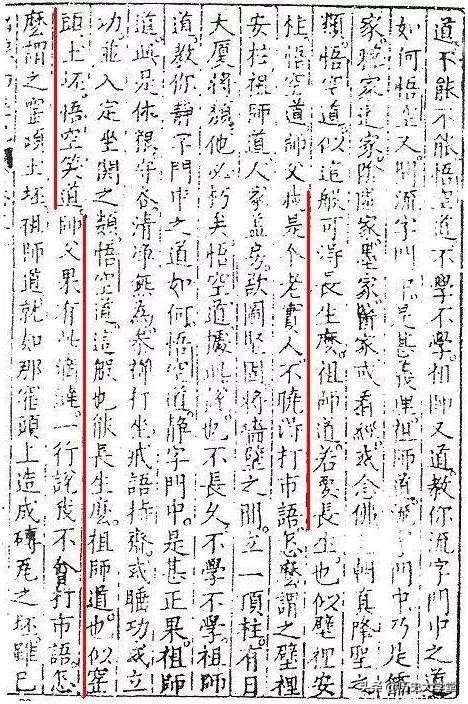 道不能不能悟空道不學不學祖師又道教你流字門中之道
如何悟空又問流字門中是甚義理祖師道流字門中乃是儒
家釋家道家陰陽家墨家醫家或看經或念佛朝真降聖之
類悟空道似這般可得長生麼祖師道若要長生也似壁裡安
柱悟空道師父我是个老實人不曉得打市語怎麼謂之壁裡
安柱祖師道人家蓋房欲圖堅固將墻壁之間立一頂柱有日
大厦將頹他必朽矣悟空道據此說也不長久不學不學祖師
道教你靜字門中之道如何悟空道靜字門中是甚正果祖師
道此是休糧守谷清淨無為參禪打坐戒語持齋或睡功或立
功並入定坐關之類悟空道這般也能長生麼祖師道也似窑
頭土坯悟空笑道師父果有些滴澾一行說我不會打市語怎
麼謂之窑頭土坯祖師道就如那窑頭上造成磚瓦之坯雖已